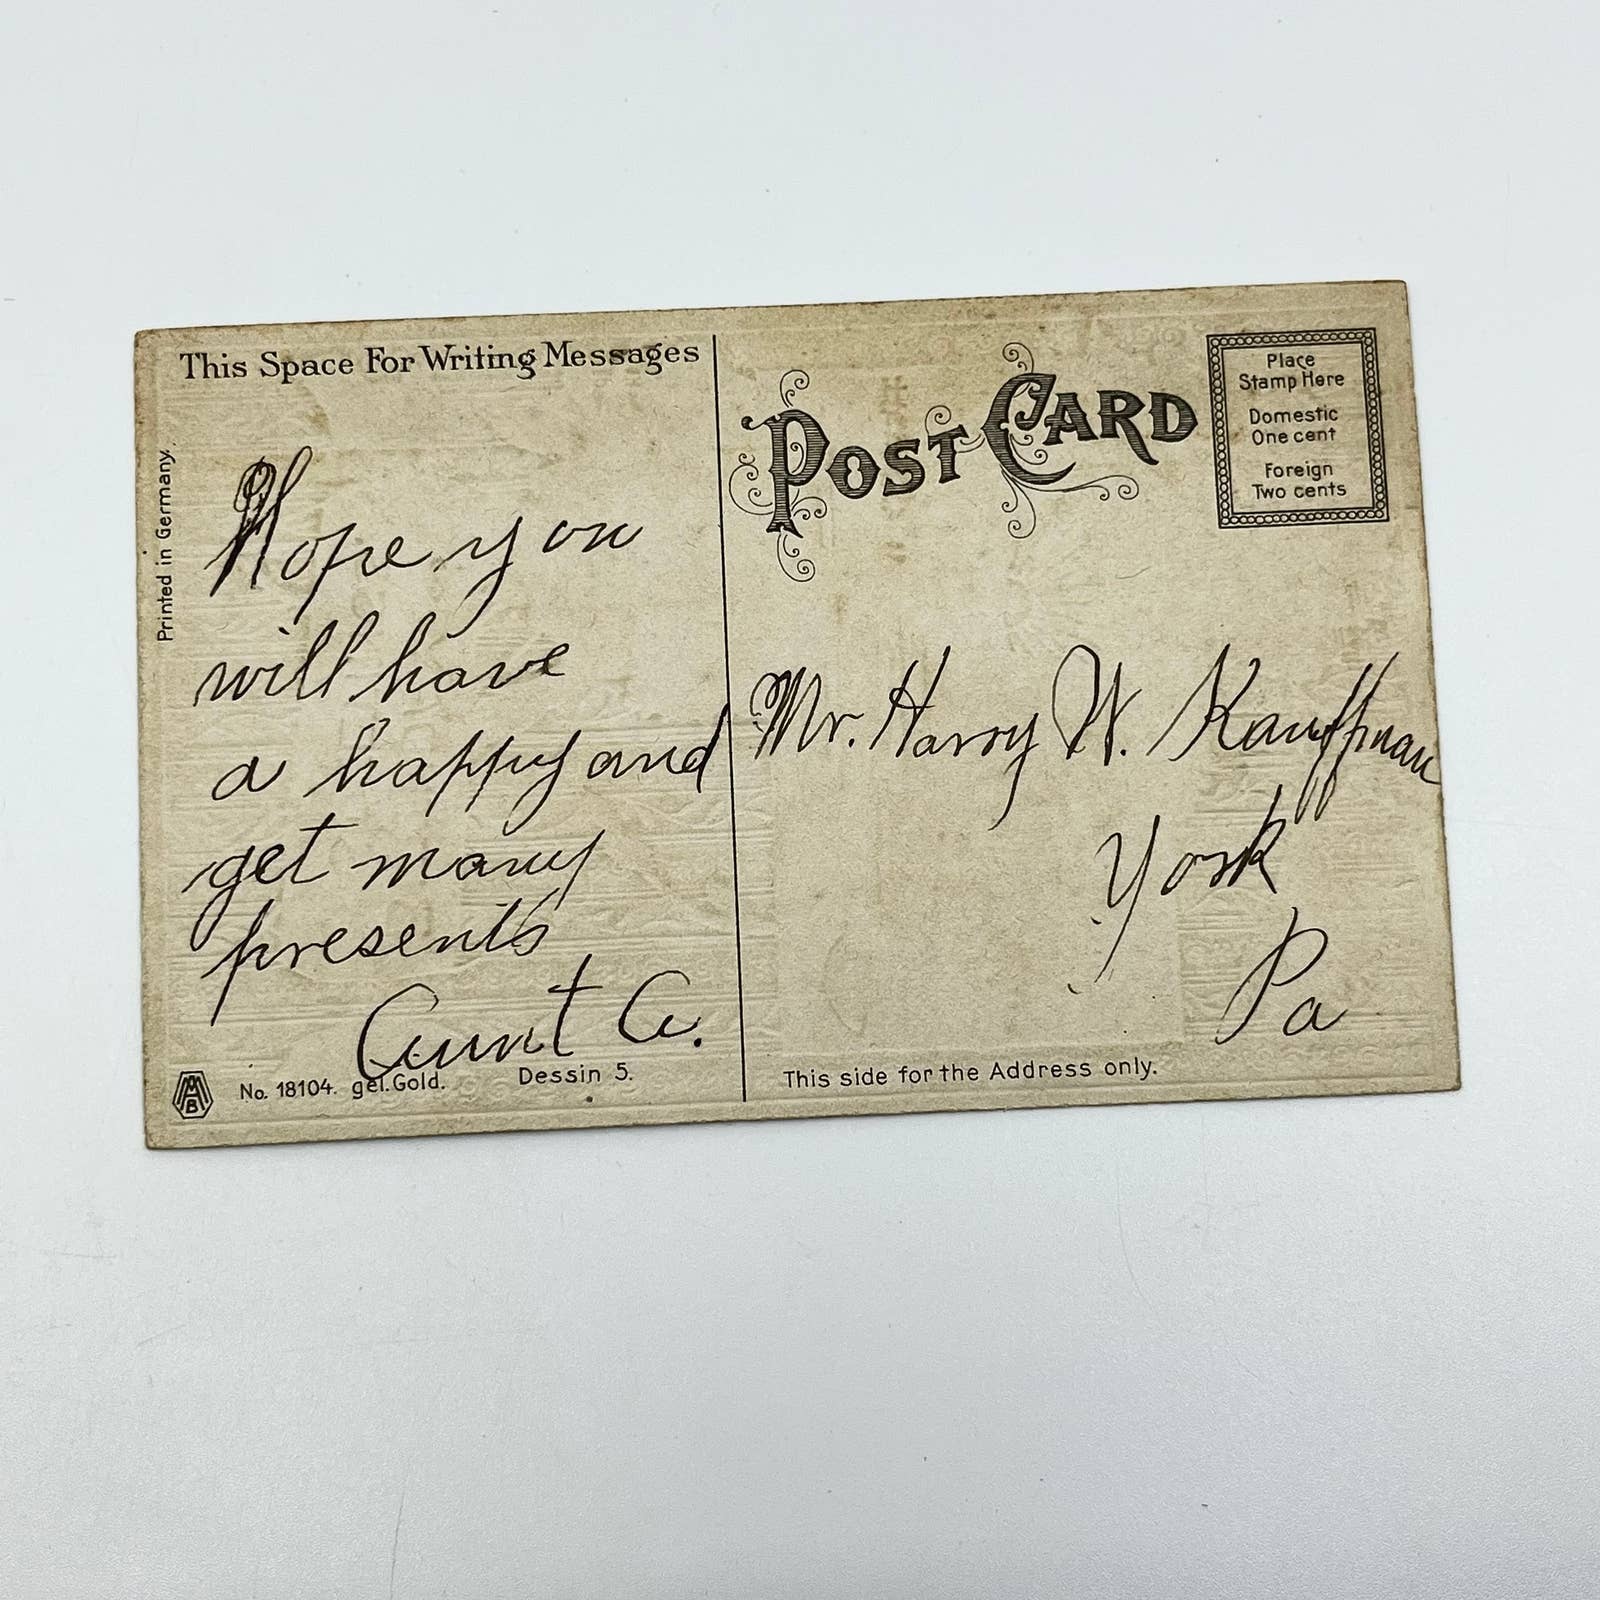 This Space For Writing Messages
Printed in Germany.
Hope you
will have
a happy and
get many
presents
Aunt C.
MAB
No. 18104. gel. Gold. Dessin 5.
POST CARD
Place
Stamp Here
Domestic
One cent
Foreign
Two cents
Mr. Harry W. Kauffman
York
Pa
This side for the Address only.